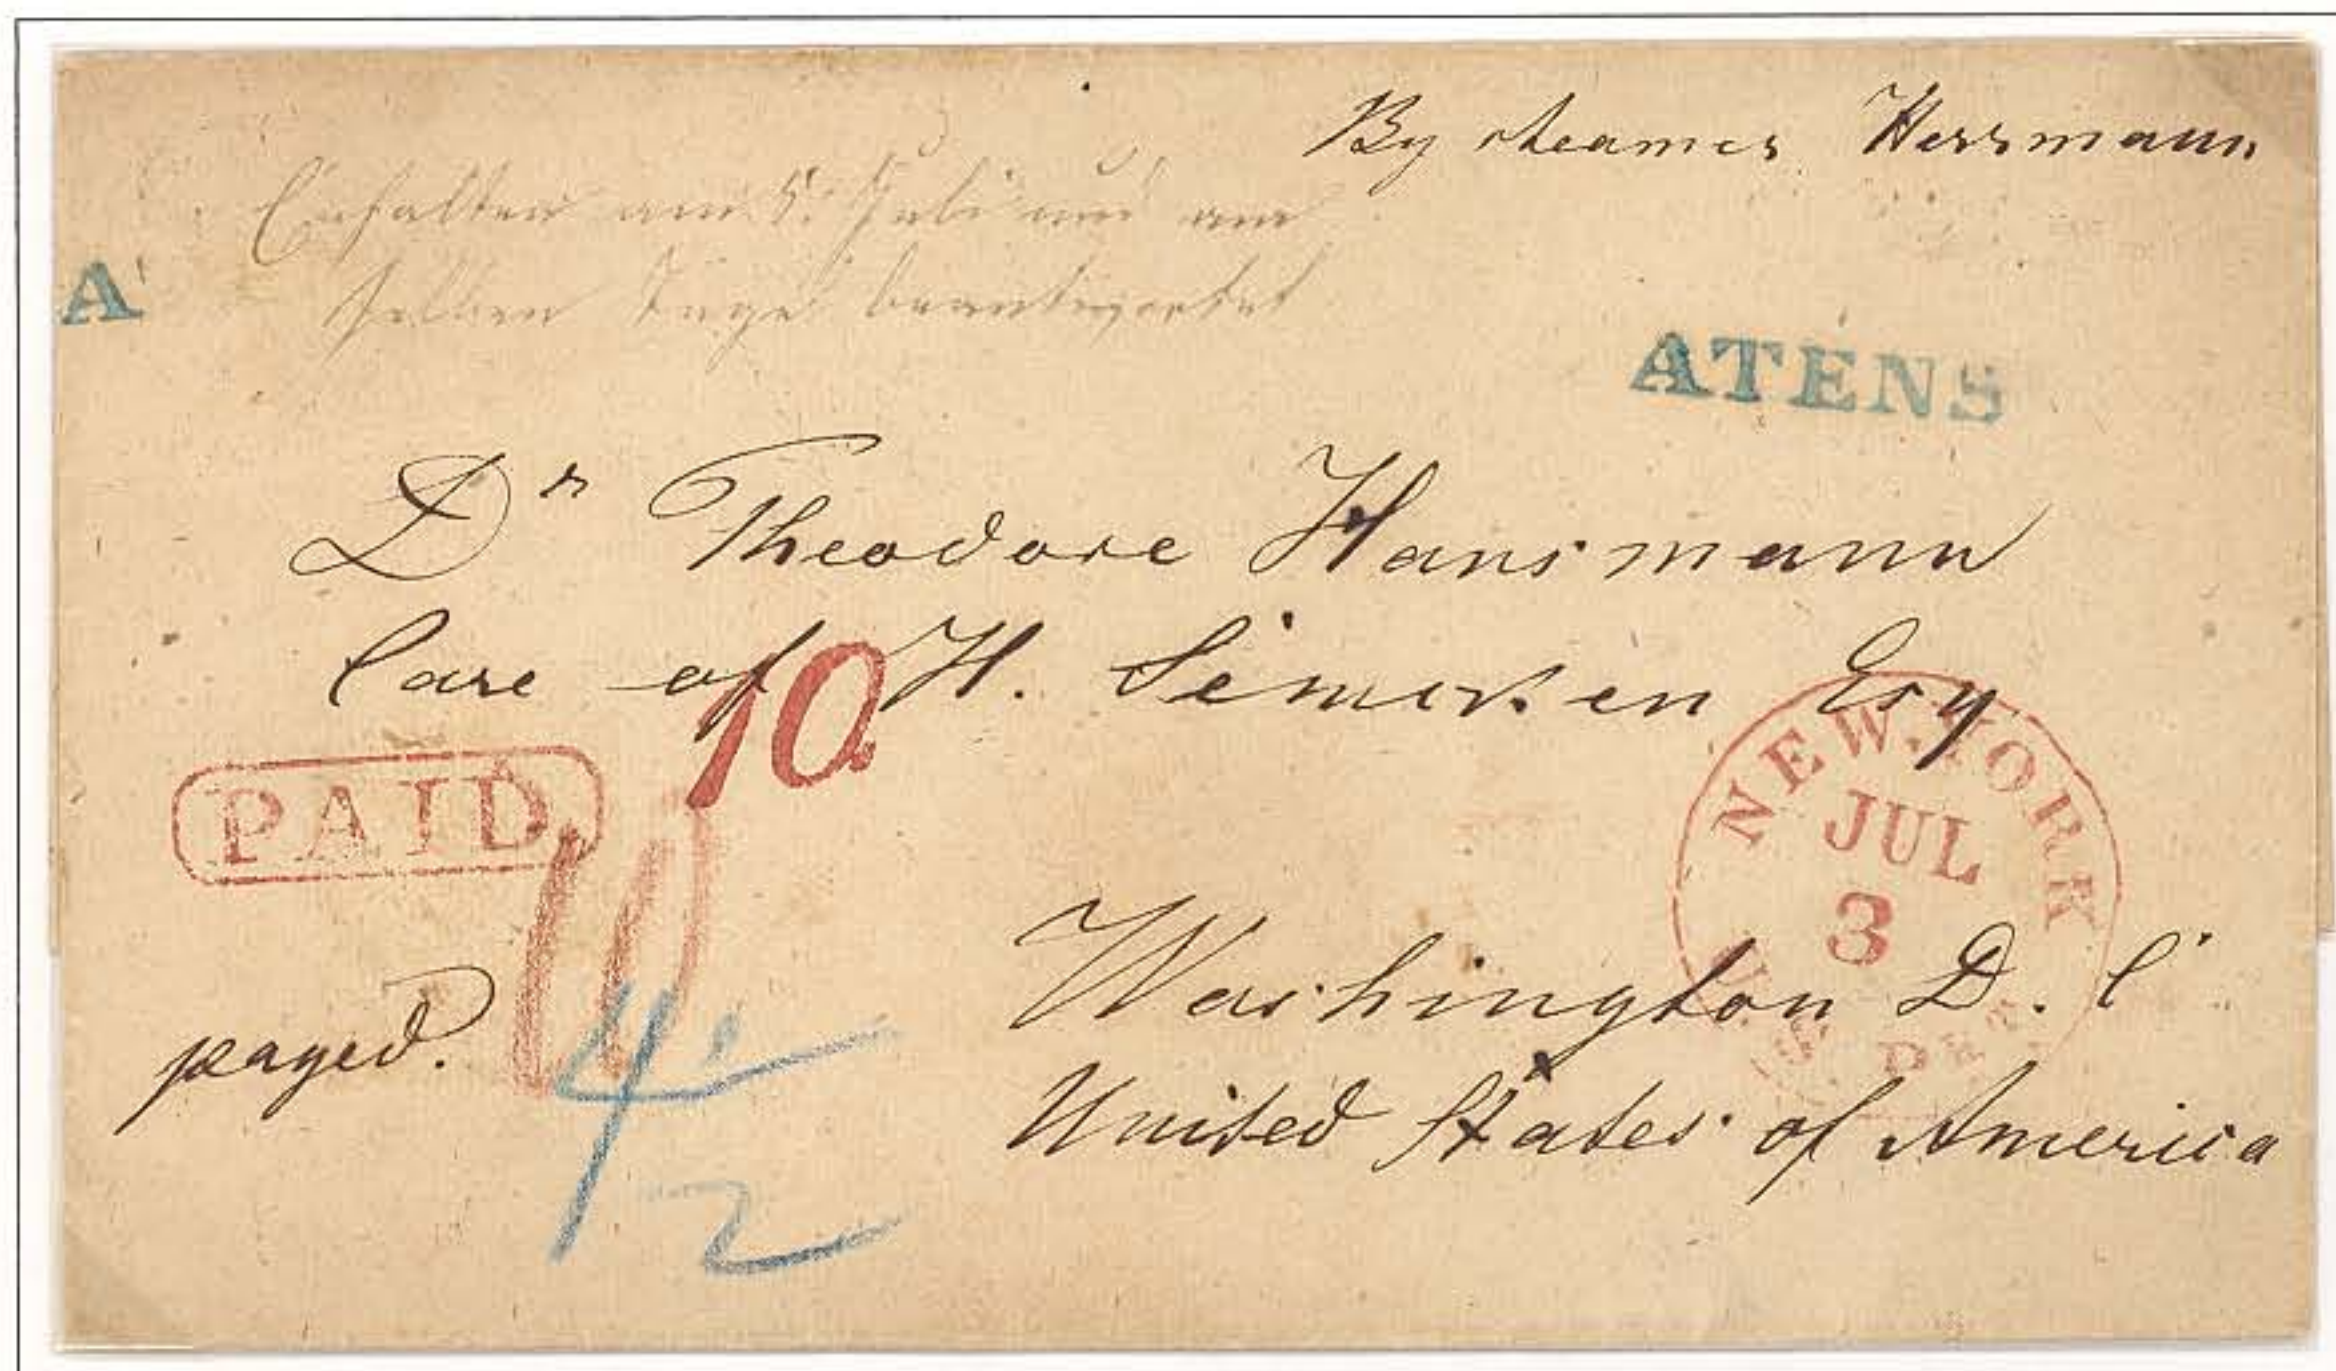 By steamer Herrmann
Erhalten am 5. Juli und am
selben Tage beantwortet
A
ATENS
Dr Theodore Hansmann
Care of H. Simeken Esq
10
PAID
NEW YORK
JUL
3
U.S. PKT
payed.
4 1/2
Washington D. C
United States of America